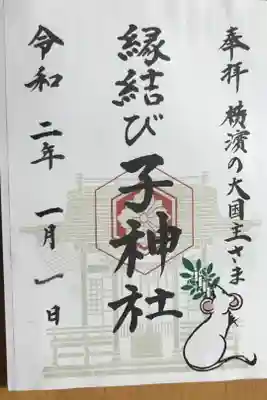 奉拝 横濱の大国主さま
縁結び 子神社
令和 二年 一月 一日